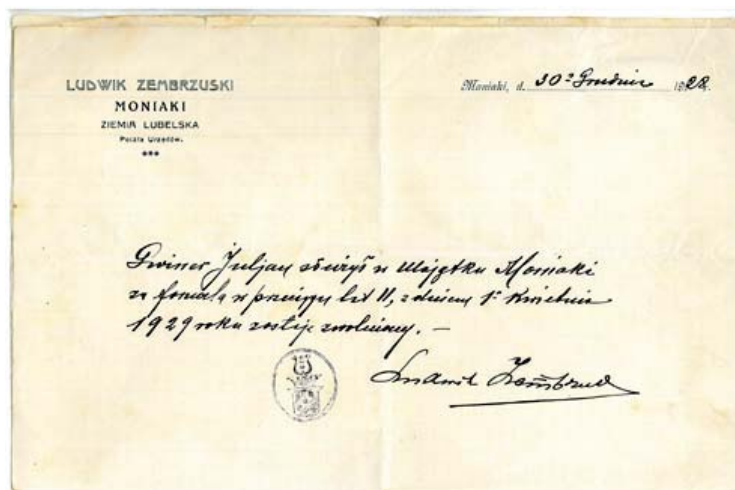 LUDWIK ZEMBRZUSKI
MONIAKI
ZIEMIA LUBELSKA
Poczta Urzędów.
Moniaki, d. 30º Grudnia 1928.
Gwiner Juljan służył w Majątku Moniaki
za fornala w przeciągu lat 11, z dniem 1º Kwietnia
1929 roku zostaje zwolniony. —
Ludwik